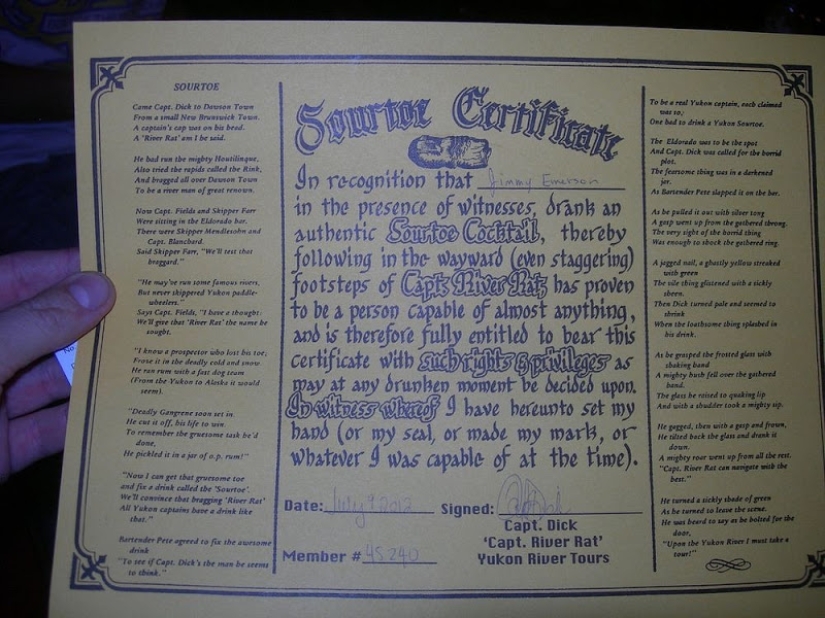 SOURTOE
Came Capt. Dick to Dawson Town
From a small New Brunswick Town.
A captain's cap was on his head.
A "River Rat" am I he said.
He had run the mighty Houtilinque,
Also tried the rapids called the Rink,
And bragged all over Dawson Town
To be a river man of great renown.
Now Capt. Fields and Skipper Farr
Were sitting in the Eldorado bar.
There were Skipper Mendlesohn and
Capt. Blanchard.
Said Skipper Farr, "We'll test that
braggard."
"He may've run some famous rivers,
But never skippered Yukon paddle-
wheelers."
Says Capt. Fields, "I have a thought:
We'll give that 'River Rat' the name he
sought.
"I know a prospector who lost his toe;
Froze it in the deadly cold and snow
He ran rum with a fast dog team
(From the Yukon to Alaska it would
seem).
"Deadly Gangrene soon set in.
He cut it off, his life to win.
To remember the gruesome task he'd
done,
He pickled it in a jar of o.p. rum!"
"Now I can get that gruesome toe
and fix a drink called the 'Sourtoe'.
We'll convince that bragging 'River Rat'
All Yukon captains have a drink like
that."
Bartender Pete agreed to fix the awesome
drink
"To see if Capt. Dick's the man he seems
to think."
Sourtoe Certificate
In recognition that Jimmy Emerson
in the presence of witnesses, drank an
authentic Sourtoe Cocktail, thereby
following in the wayward (even staggering)
footsteps of Capt. River Rat, has proven
to be a person capable of almost anything,
and is therefore fully entitled to bear this
certificate with such rights & privileges as
may at any drunken moment be decided upon.
In witness whereof I have hereunto set my
hand (or my seal, or made my mark, or
whatever I was capable of at the time).
Date: July 9 2012 Signed:
Capt. Dick
'Capt. River Rat'
Member # 45 240 Yukon River Tours
To be a real Yukon captain, each claimed
was so;
One had to drink a Yukon Sourtoe.
The Eldorado was to be the spot
And Capt. Dick was called for the horrid
plot.
The fearsome thing was in a darkened
jar.
As Bartender Pete slapped it on the bar.
As he pulled it out with silver tong
A gasp went up from the gathered throng.
The very sight of the horrid thing
Was enough to shock the gathered ring.
A jagged nail, a ghostly yellow streaked
with green
The vile thing glistened with a sickly
sheen.
Then Dick turned pale and seemed to
shrink
When the loathsome thing splashed in
his drink.
As he grasped the frotted glass with
shaking hand
A mighty hush fell over the gathered
band.
The glass he raised to quaking lip
And with a shudder took a mighty sip.
He gagged, then with a gasp and frown,
He tilted back the glass and drank it
down.
A mighty roar went up from all the rest.
"Capt. River Rat can navigate with the
best."
He turned a sickly shade of green
As he turned to leave the scene.
He was heard to say as he bolted for the
door,
"Upon the Yukon River I must take a
tour!"